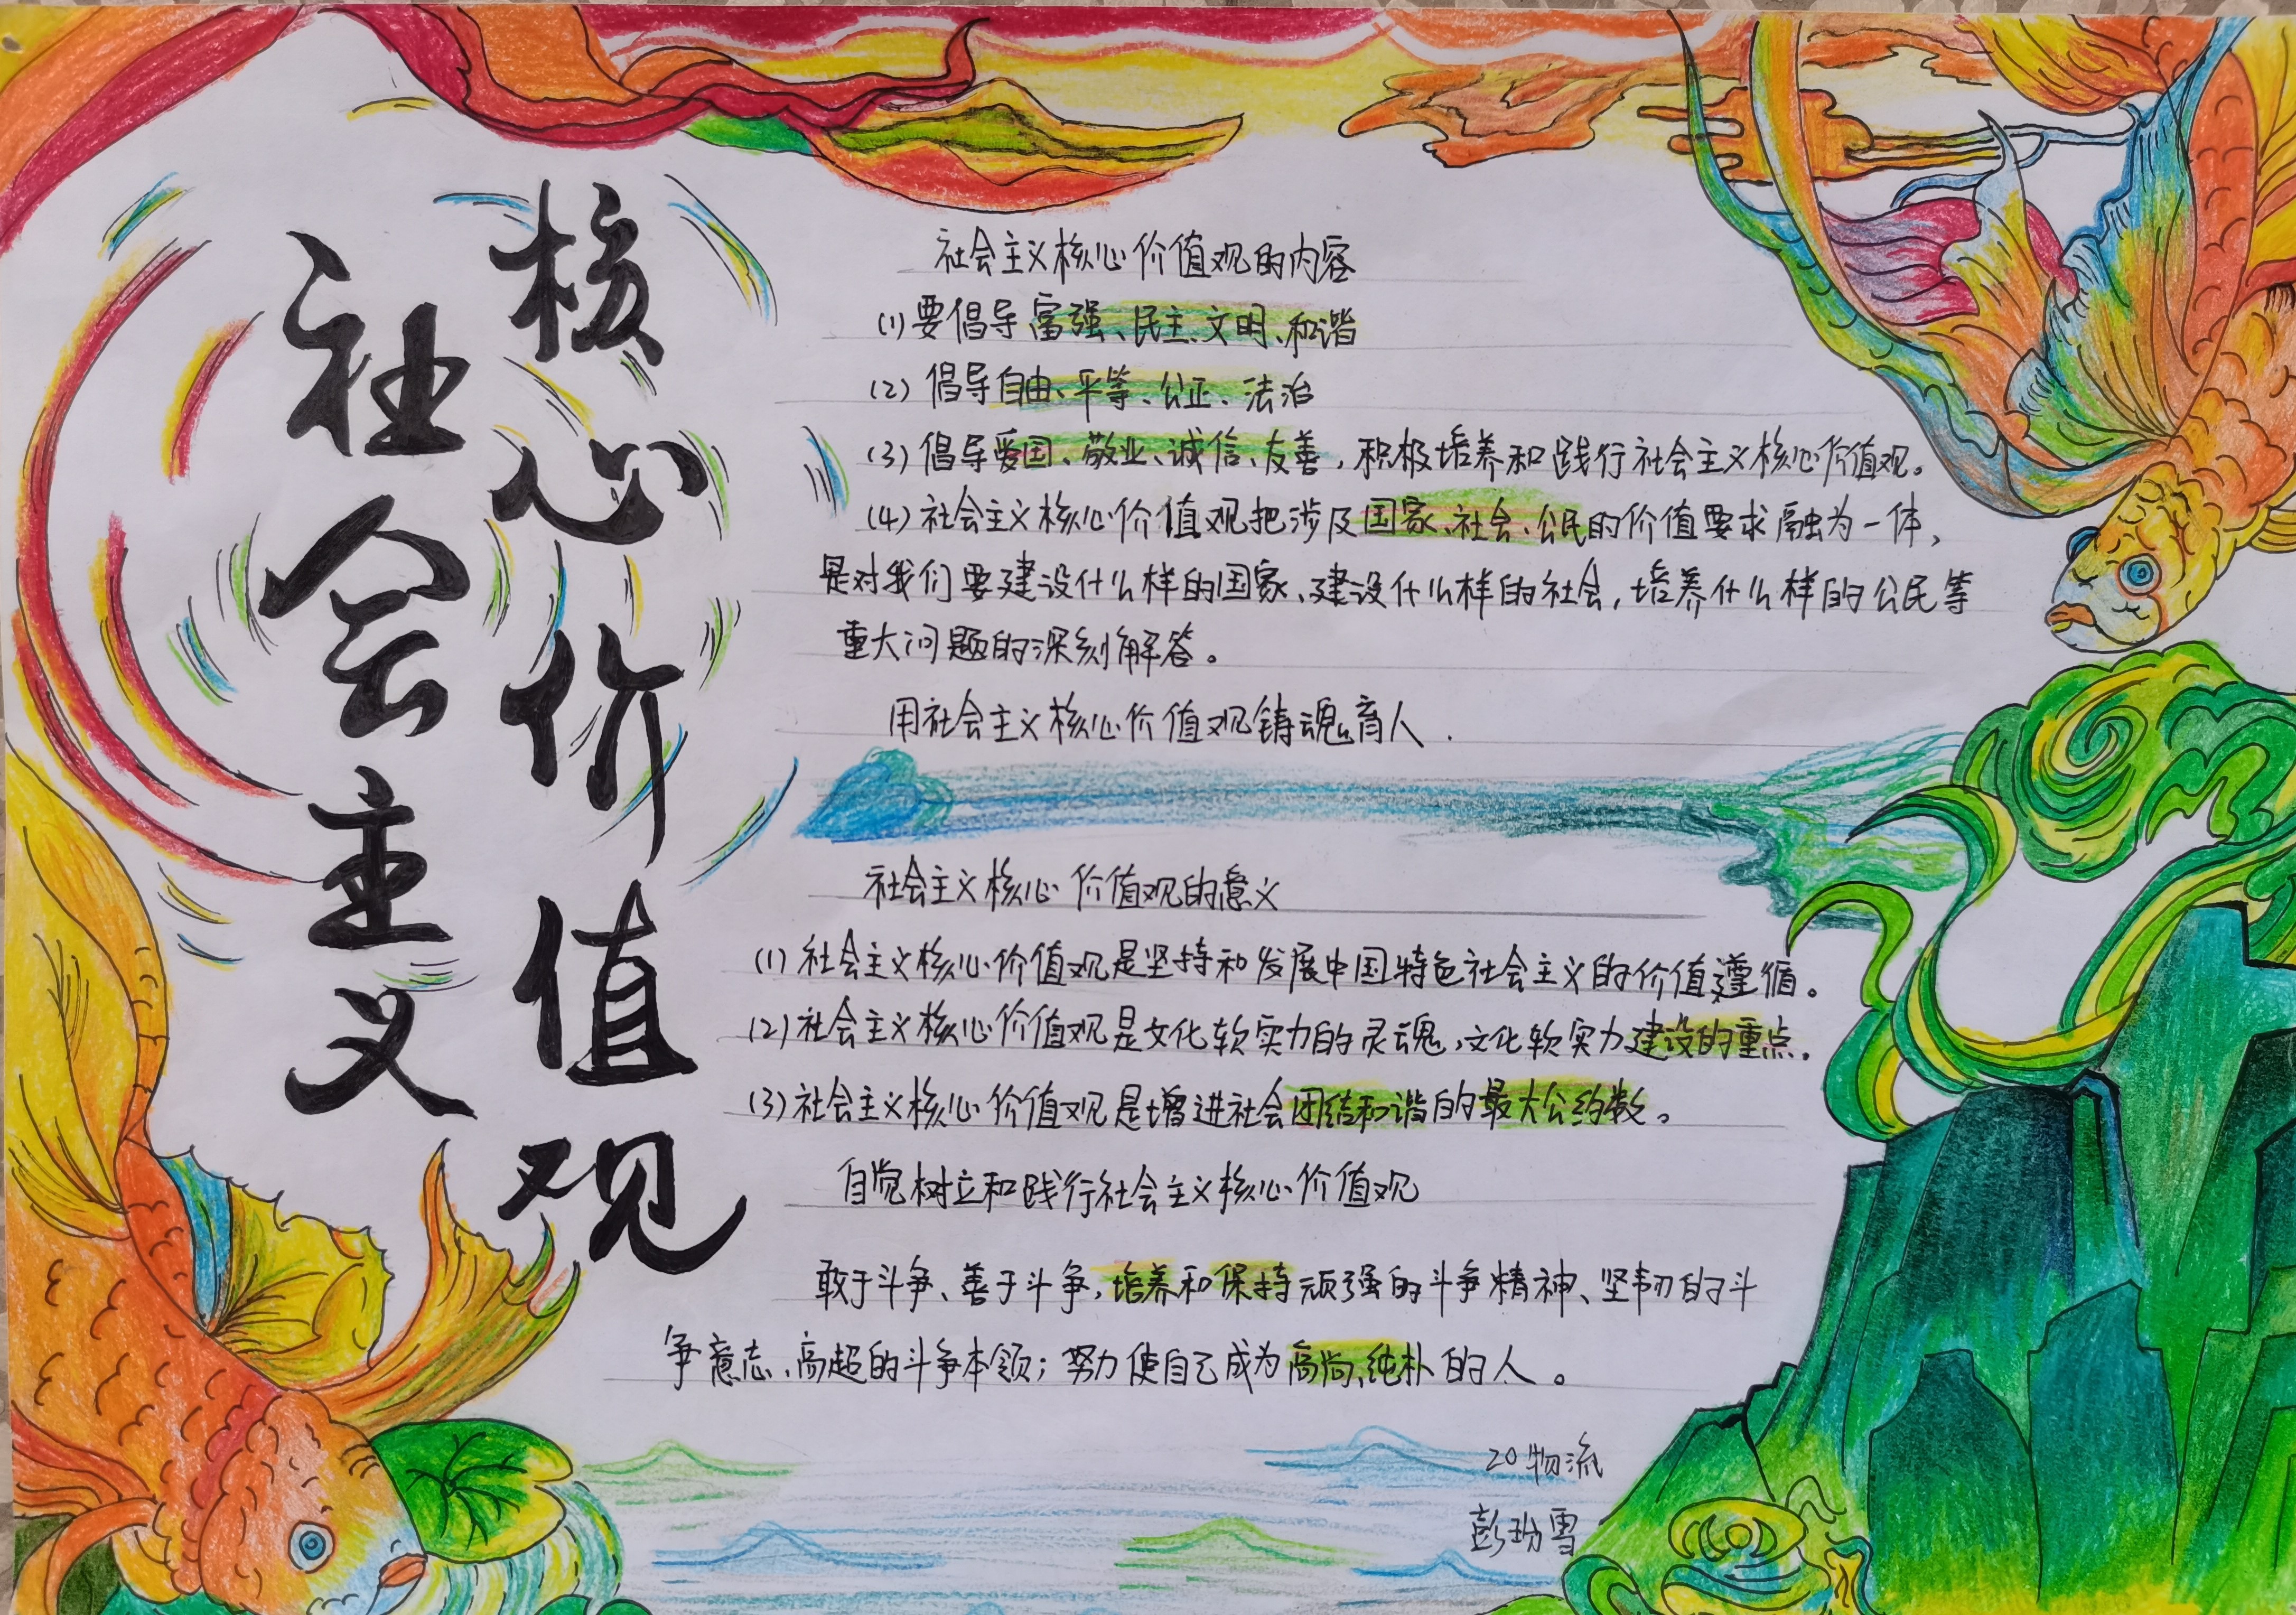 社会主义
核心价值观
社会主义核心价值观的内容
(1)要倡导富强、民主、文明、和谐
(2)倡导自由、平等、公正、法治
(3)倡导爱国、敬业、诚信、友善，积极培养和践行社会主义核心价值观。
(4)社会主义核心价值观把涉及国家、社会、公民的价值要求融为一体，
是对我们要建设什么样的国家、建设什么样的社会，培养什么样的公民等
重大问题的深刻解答。
用社会主义核心价值观铸魂育人.
社会主义核心价值观的意义
(1)社会主义核心价值观是坚持和发展中国特色社会主义的价值遵循。
(2)社会主义核心价值观是文化软实力的灵魂,文化软实力建设的重点.
(3)社会主义核心价值观是增进社会团结和谐的最大公约数。
自觉树立和践行社会主义核心价值观
敢于斗争、善于斗争，培养和保持顽强的斗争精神、坚韧的斗
争意志、高超的斗争本领；努力使自己成为高尚、纯朴的人。
20物流
彭玢雪